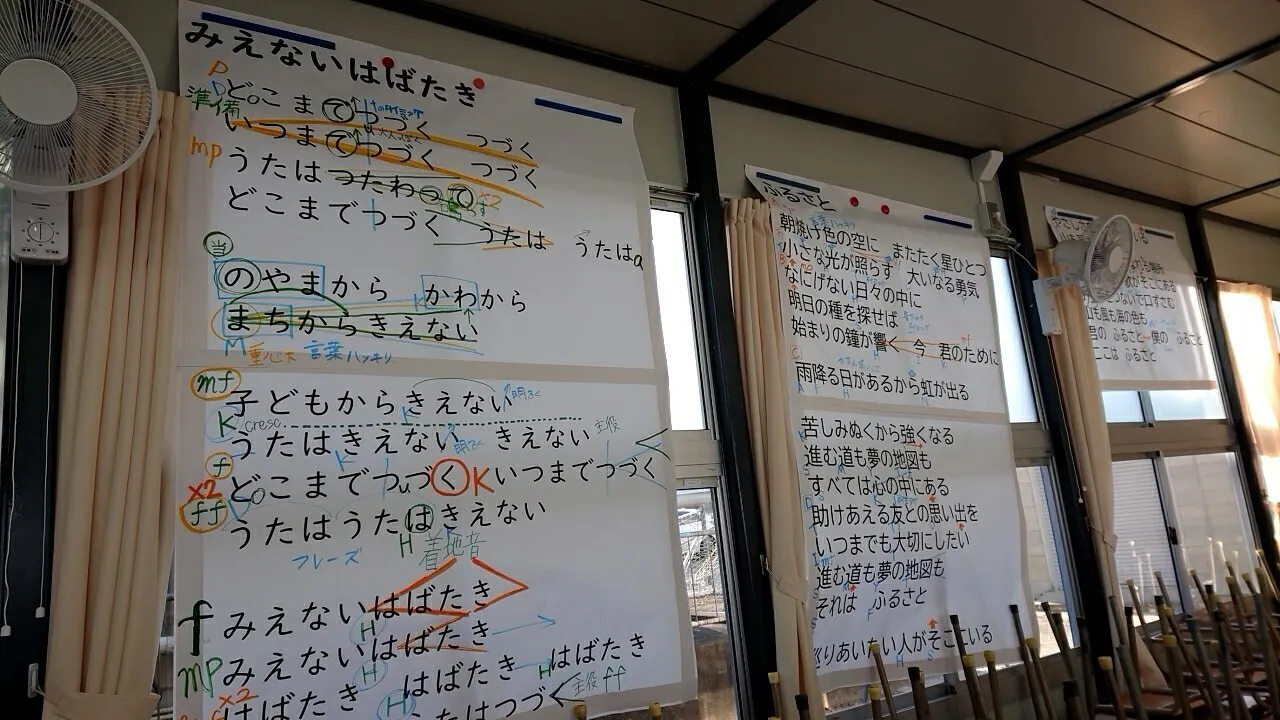 みえないはばたき
P
準備
どこまでつづく　つづく
いつまでつづく　つづく
mp
うたはつたわって
x2
どこまでつづく　うたは　うたは
当
のやまから　かわから
まちからきえない
M 重心木 言葉ハッキリ
mf
子どもからきえない
K cresc
うたはきえない　きえない 主役
f
どこまでつづく K いつまでつづく
x2
ff
うたはうたはきえない
フレーズ H 着地音
f みえないはばたき
mp みえないはばたき
x2
はばたき　はばたき　はばたき
うたはつづく 主役 ff
ふるさと
朝焼け色の空に　またたく星ひとつ
小さな光が照らす　大いなる勇気
なにげない日々の中に
明日の種を探せば
始まりの鐘が響く　今　君のために
雨降る日があるから虹が出る
苦しみぬくから強くなる
進む道も夢の地図も
すべては心の中にある
助けあえる友との思い出を
いつまでも大切にしたい
進む道も夢の地図も
それは　ふるさと
巡りあいたい人がそこにいる
がそこにある
つないで口ずさむ
山も風も海の色も
君の　ふるさと　僕の　ふるさと
ここは　ふるさと